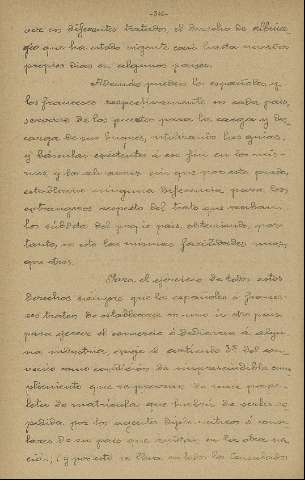 -346-
vez en diferentes tratados el derecho de albina-
gio que ha estado vigente casi hasta nuestros
propios dias en algunos paises.
Además pueden los españoles y
los franceses respectivamente en cada pais,
servirse de los puertos para la carga y des-
carga de sus buques, utilizando las gruas,
y básculas existentes á ese fin en los mis-
mos y las aduanas sin que por esto pueda
establecerse ninguna diferencia para los
extrangeros respecto del trato que reciban
los súbditos del propio pais, obteniendo, por
tanto, en esto las mismas facilidades unos,
que otros.
Para el ejercicio de todos estos
derechos siempre que los españoles ó france-
ses traten de establecerse en uno ú otro pais
para ejercer el comercio ó dedicarse á algu-
na industria, exige el artículo 3º del con-
venio como condición de imprescindible cum-
plimiento que se provean de una pape-
leta de matrícula que habrá de serles ex-
pedida por los agentes diplomáticos ó consu-
lares de su pais que existan en la otra na-
ción, y por esto se lleva en todos los Consulados